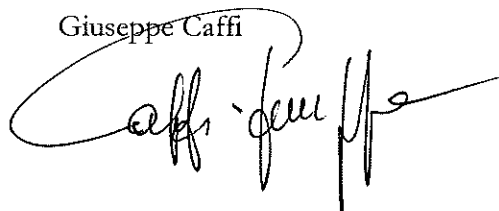 Giuseppe Caffi
Caffi Giuseppe